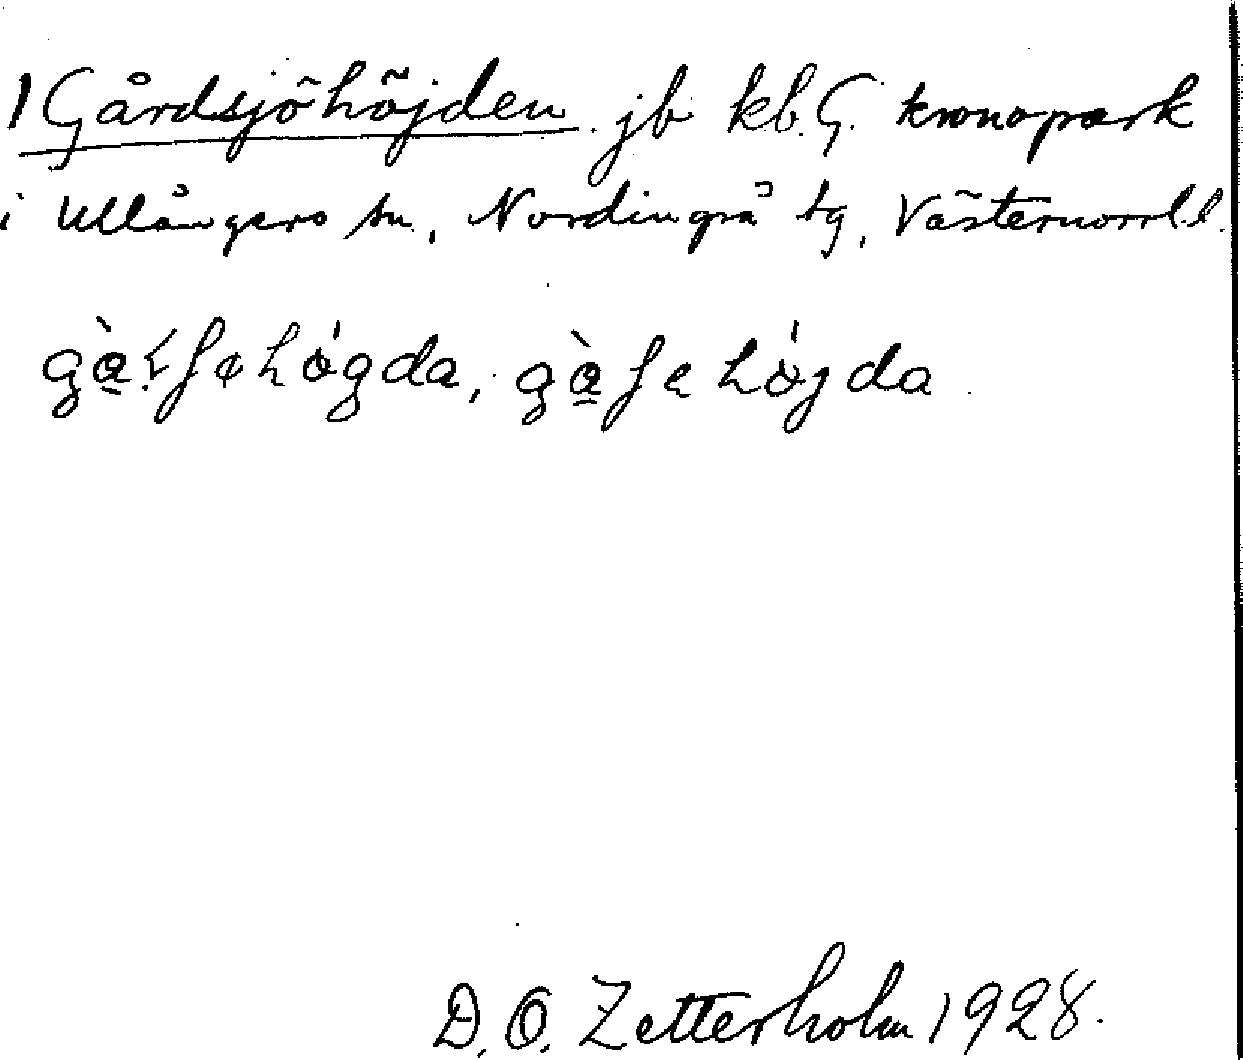 1 Gårdsjöhöjden jb kb. G. kronopark
i Ullångers sn, Nordingrå tg, Västernorrl. l.
D. O. Zetterholm 1928.